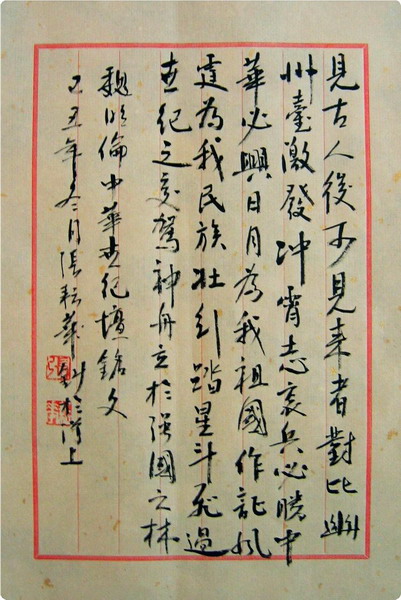 見古人後不見來者對此幽
州臺激發沖霄志哀兵必勝中
華必興日月為我祖國作証風
為我民族壯行踏星斗飛過
世紀之交駕神舟立於強國之林
魏明倫中華世紀壇銘文
己丑年冬月張耘華於上